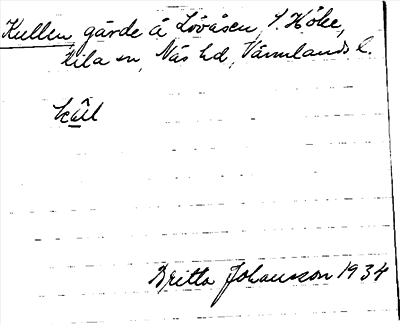 Kullen gärde å Lövåsen, S. Höke,
Kila sn, Näs hd, Värmlands l.
kûll
Britta Johansson 1934